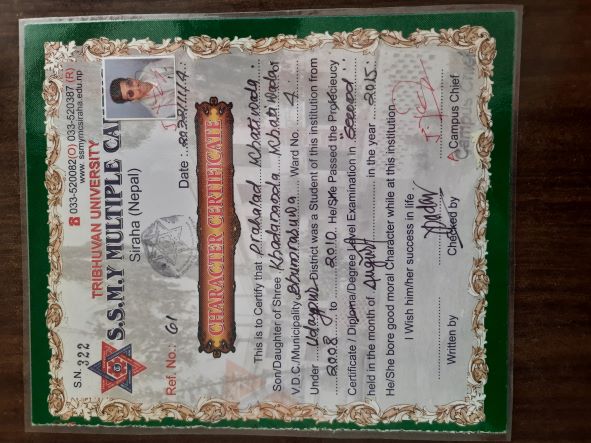 S.N. 322
033-520082(O) 033-520387 (R)
www. ssmymcsiraha.edu.np
TRIBHUVAN UNIVERSITY
S.S.M.Y MULTIPLE CA
Siraha (Nepal)
Ref. No.: 61
Date :
CHARACTER CERTIFICATE
This is to Certify that Prahalad
Son/Daughter of Shree Khadananda
V.D.C./Municipality Bhumrasuwa Ward No. 4
Under Udaypur District was a Student of this institution from
2008 to 2010 He/She Passed the Profecieucy
Certificate / Diploma/Degree Level Examination in "Second"
held in the month of August in the year 2015
He/She bore good moral Character while at this institution
I Wish him/her success in life .
Yadav
Written by Checked by A Campus Chief
Campus Chief